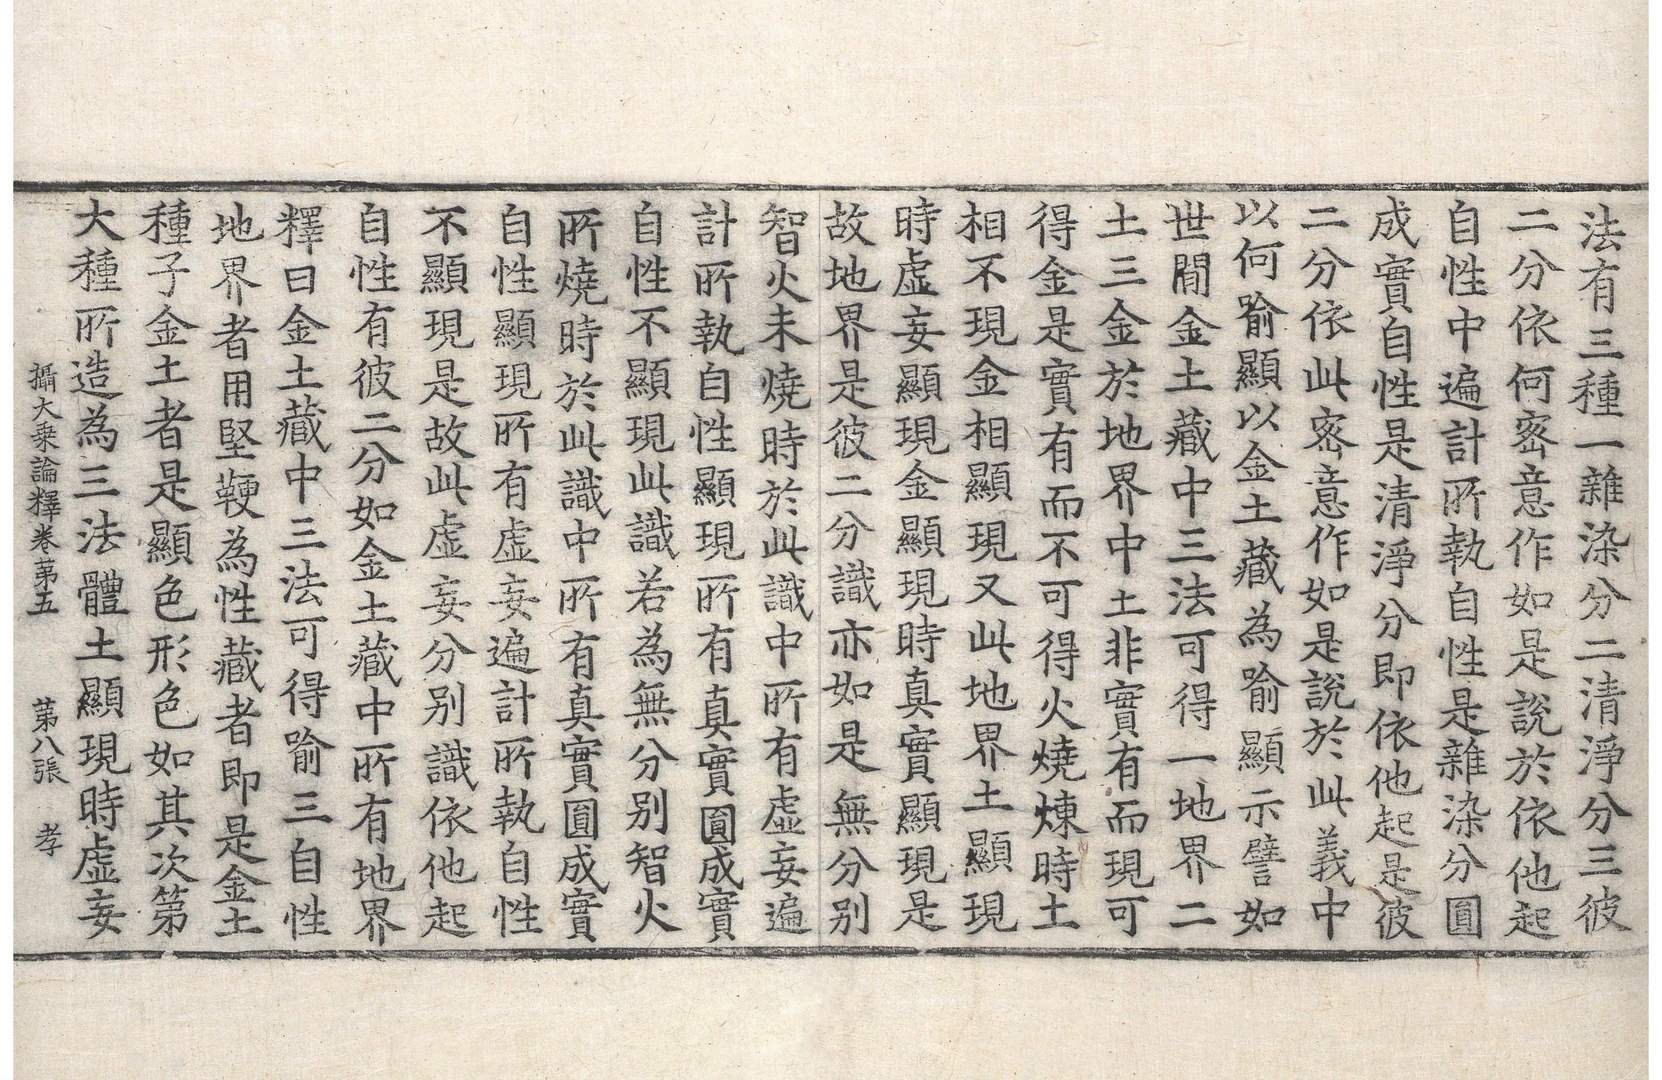 法有三種一雜染分二清淨分三彼
二分依何密意作如是說於依他起
自性中遍計所執自性是雜染分圓
成實自性是清淨分即依他起是彼
二分依此密意作如是說於此義中
以何喻顯以金土藏為喻顯示譬如
世間金土藏中三法可得一地界二
土三金於地界中土非實有而現可
得金是實有而不可得火燒煉時土
相不現金相顯現又此地界土顯現
時虛妄顯現金顯現時真實顯現是
故地界是彼二分識亦如是無分別
智火未燒時於此識中所有虛妄遍
計所執自性顯現所有真實圓成實
自性不顯現此識若為無分別智火
所燒時於此識中所有真實圓成實
自性顯現所有虛妄遍計所執自性
不顯現是故此虛妄分別識依他起
自性有彼二分如金土藏中所有地界
釋曰金土藏中三法可得喻三自性
地界者用堅鞕為性藏者即是金土
種子金土者是顯色形色如其次第
大種所造為三法體土顯現時虛妄
攝大乗論釋卷苐五 苐八張 孝